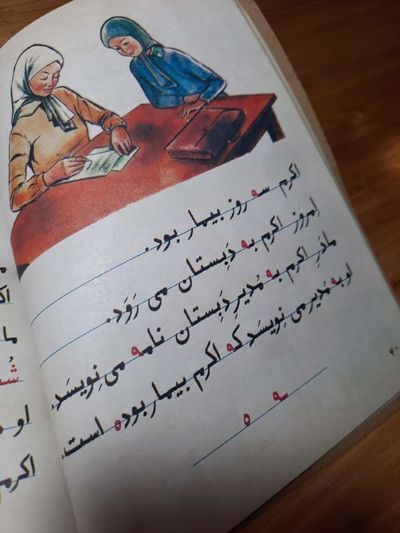 اکرم سه روز بیمار بود.
اِمروز اکرم به دَبِستان می رَوَد.
مادَرِ اکرم به مُدیرِ دَبِستان نامه می نِویسَد.
او به مُدیر می نِویسَد که اکرم بیمار بوده است.
ـه ه
۴۰